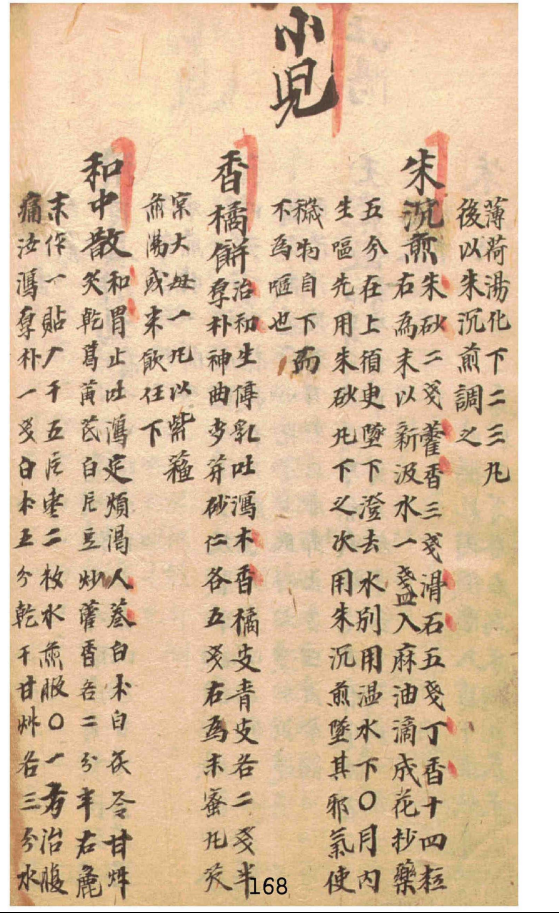 小兒
薄荷湯化下二三丸
後以朱沉煎調之
朱沉煎 朱砂二戔藿香三戔滑石五戔丁香十四粒
右為末以新汲水一盞入麻油滴成花抄藥
五分在上須臾墜下澄去水別用温水下〇月內
生嘔先用朱砂丸下之次用朱沉煎墜其邪氣使
穢物自下而
不為嘔也
香橘餠 治初生傷乳吐瀉木香橘皮青皮各二戔半
厚朴神曲麥芽砂仁各五戔右為末蜜丸芡
宲大每一丸以紫蘇
煎湯或米飮任下
和中散 和胃止吐瀉定煩渴人蔘白朮白茯苓甘艸
炙乾葛黃芪白扁豆炒藿香各二分半右麁
末作一貼干五片枣二枚水煎服〇一方治腹
痛瀉厚朴一戔白朮五分乾干甘艸各三分水
168